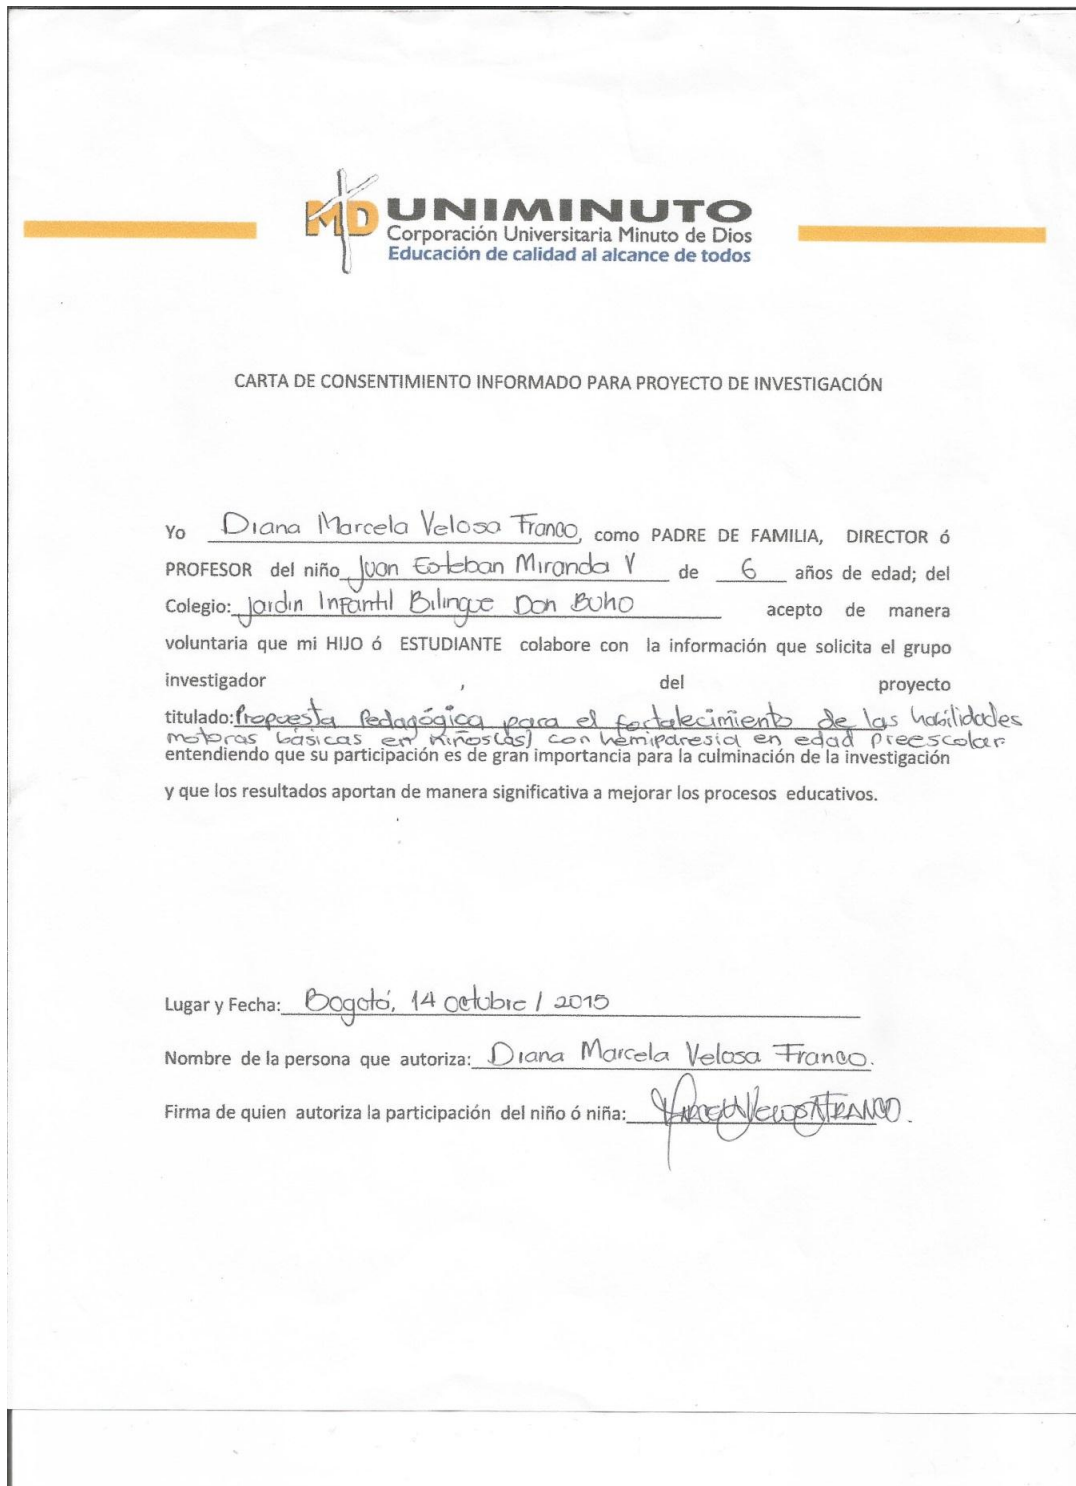 MD UNIMINUTO
Corporación Universitaria Minuto de Dios
Educación de calidad al alcance de todos
CARTA DE CONSENTIMIENTO INFORMADO PARA PROYECTO DE INVESTIGACIÓN
Yo Diana Marcela Velosa Franco, como PADRE DE FAMILIA, DIRECTOR ó
PROFESOR del niño Juan Esteban Miranda V de 6 años de edad; del
Colegio: Jardin Infantil Bilingue Don Buho acepto de manera
voluntaria que mi HIJO ó ESTUDIANTE colabore con la información que solicita el grupo
investigador , del proyecto
titulado: Propuesta Pedagógica para el fortalecimiento de las habilidades
motoras básicas en niños(as) con hemiparesia en edad preescolar
entendiendo que su participación es de gran importancia para la culminación de la investigación
y que los resultados aportan de manera significativa a mejorar los procesos educativos.
Lugar y Fecha: Bogotá, 14 octubre / 2015
Nombre de la persona que autoriza: Diana Marcela Velosa Franco.
Firma de quien autoriza la participación del niño ó niña: Marcela Velosa FRANCO.